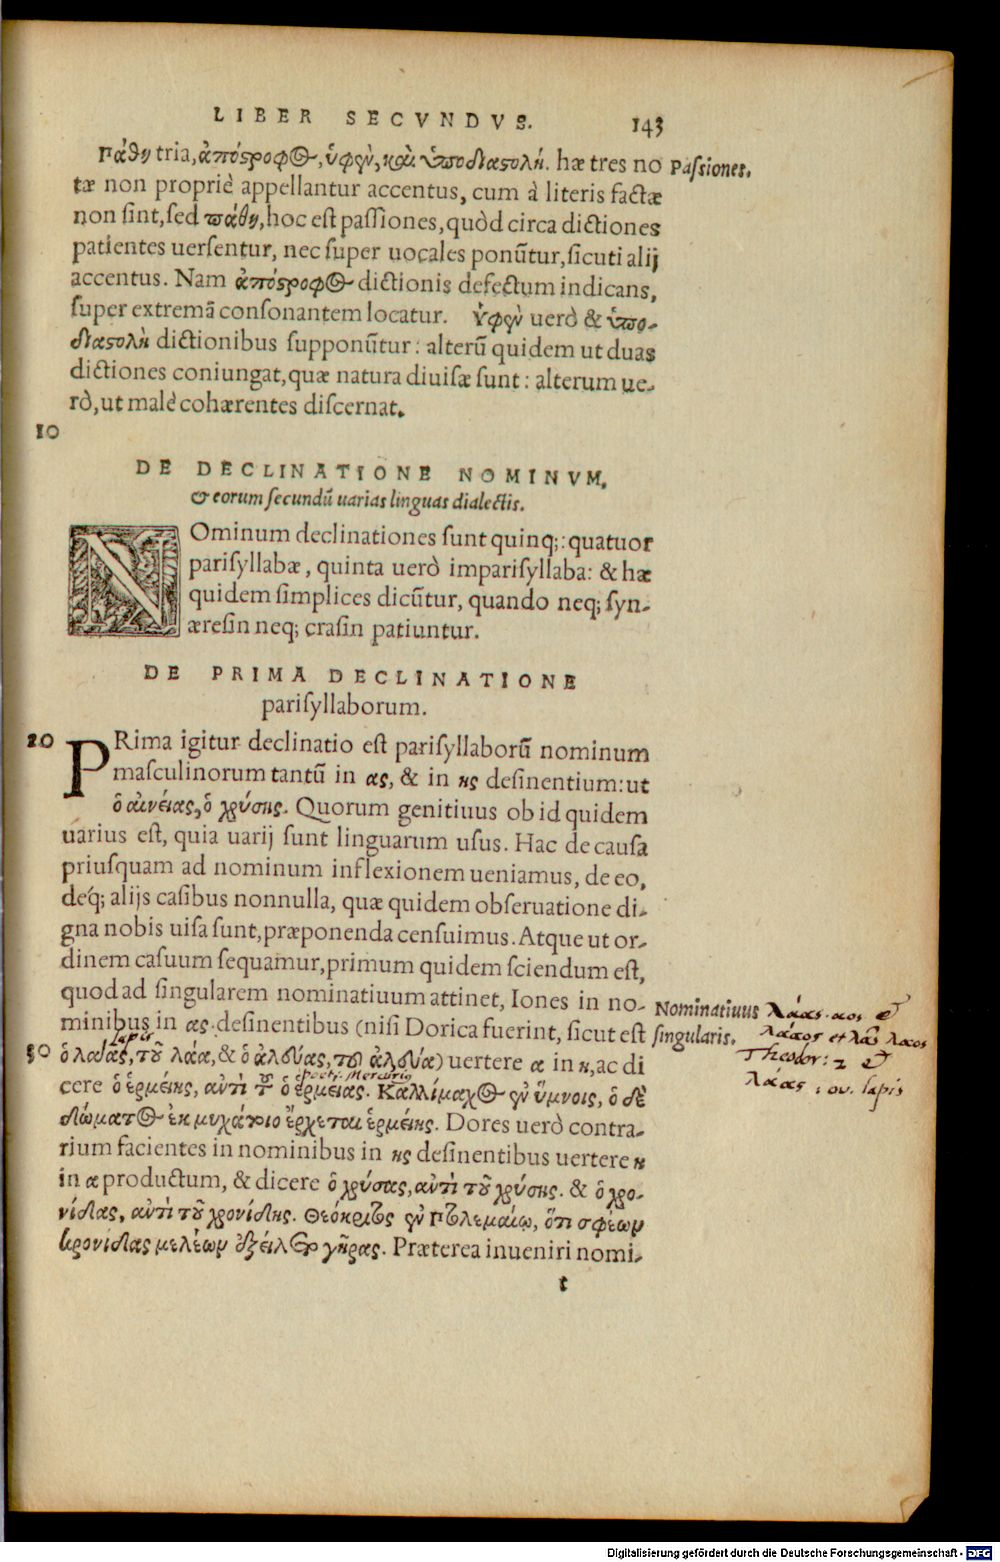 LIBER SECVNDVS. 143
πάθη tria, ἀπόστροφος, ὑφὲν, καὶ ὑποδιαστολή. hæ tres no Passiones.
tæ non propriè appellantur accentus, cum à literis factæ
non sint, sed πάθη, hoc est passiones, quòd circa dictiones
patientes uersentur, nec super uocales ponũtur, sicuti alij
accentus. Nam ἀπόστροφος dictionis defectum indicans,
super extremã consonantem locatur. ὑφὲν uerò & ὑπο-
διαστολὴ dictionibus supponũtur: alterũ quidem ut duas
dictiones coniungat, quæ natura diuisæ sunt: alterum ue-
rò, ut malè cohærentes discernat.
10
DE DECLINATIONE NOMINVM,
& eorum secundũ uarias linguas dialectis.
NOminum declinationes sunt quinq;: quatuor
parisyllabæ, quinta uerò imparisyllaba: & hæ
quidem simplices dicũtur, quando neq; syn-
æresin neq; crasin patiuntur.
DE PRIMA DECLINATIONE
parisyllaborum.
20 PRima igitur declinatio est parisyllaborũ nominum
masculinorum tantũ in ας, & in ης desinentium: ut
ὁ αἰνείας, ὁ χρύσης. Quorum genitiuus ob id quidem
uarius est, quia uarij sunt linguarum usus. Hac de causa
priusquam ad nominum inflexionem ueniamus, de eo,
déq; alijs casibus nonnulla, quæ quidem obseruatione di-
gna nobis uisa sunt, præponenda censuimus. Atque ut or-
dinem casuum sequamur, primum quidem sciendum est,
quod ad singularem nominatiuum attinet, Iones in no- Nominatiuus
minibus in ας desinentibus (nisi Dorica fuerint, sicut est singularis.
λάας. αος
λάαος et λᾶς λαος
Theodor: 2
λάας : ου. lapis
lapis
30 ὁ λάας, τοῦ λάα, & ὁ ἀλσύας, τοῦ ἀλσύα) uertere α in η, ac di
poet. Mercurius
cere ὁ ἑρμείης, ἀντὶ τοῦ ὁ ἑρμείας. Καλλίμαχος ἐν ὕμνοις, ὁ δὲ
δώματος ἐκ μυχάτοιο ἔρχεται ἑρμείης. Dores uerò contra-
rium facientes in nominibus in ης desinentibus uertere η
in α productum, & dicere ὁ χρύσας, ἀντὶ τοῦ χρύσης. & ὁ χρο-
νίδας, ἀντὶ τοῦ χρονίδης. Θεόκριτος ἐν Πτολεμαίῳ, ὅτι σφέων
κρονίδας μελέων ἐξείλετο γῆρας. Præterea inueniri nomi-
t
Digitalisierung gefördert durch die Deutsche Forschungsgemeinschaft - DFG